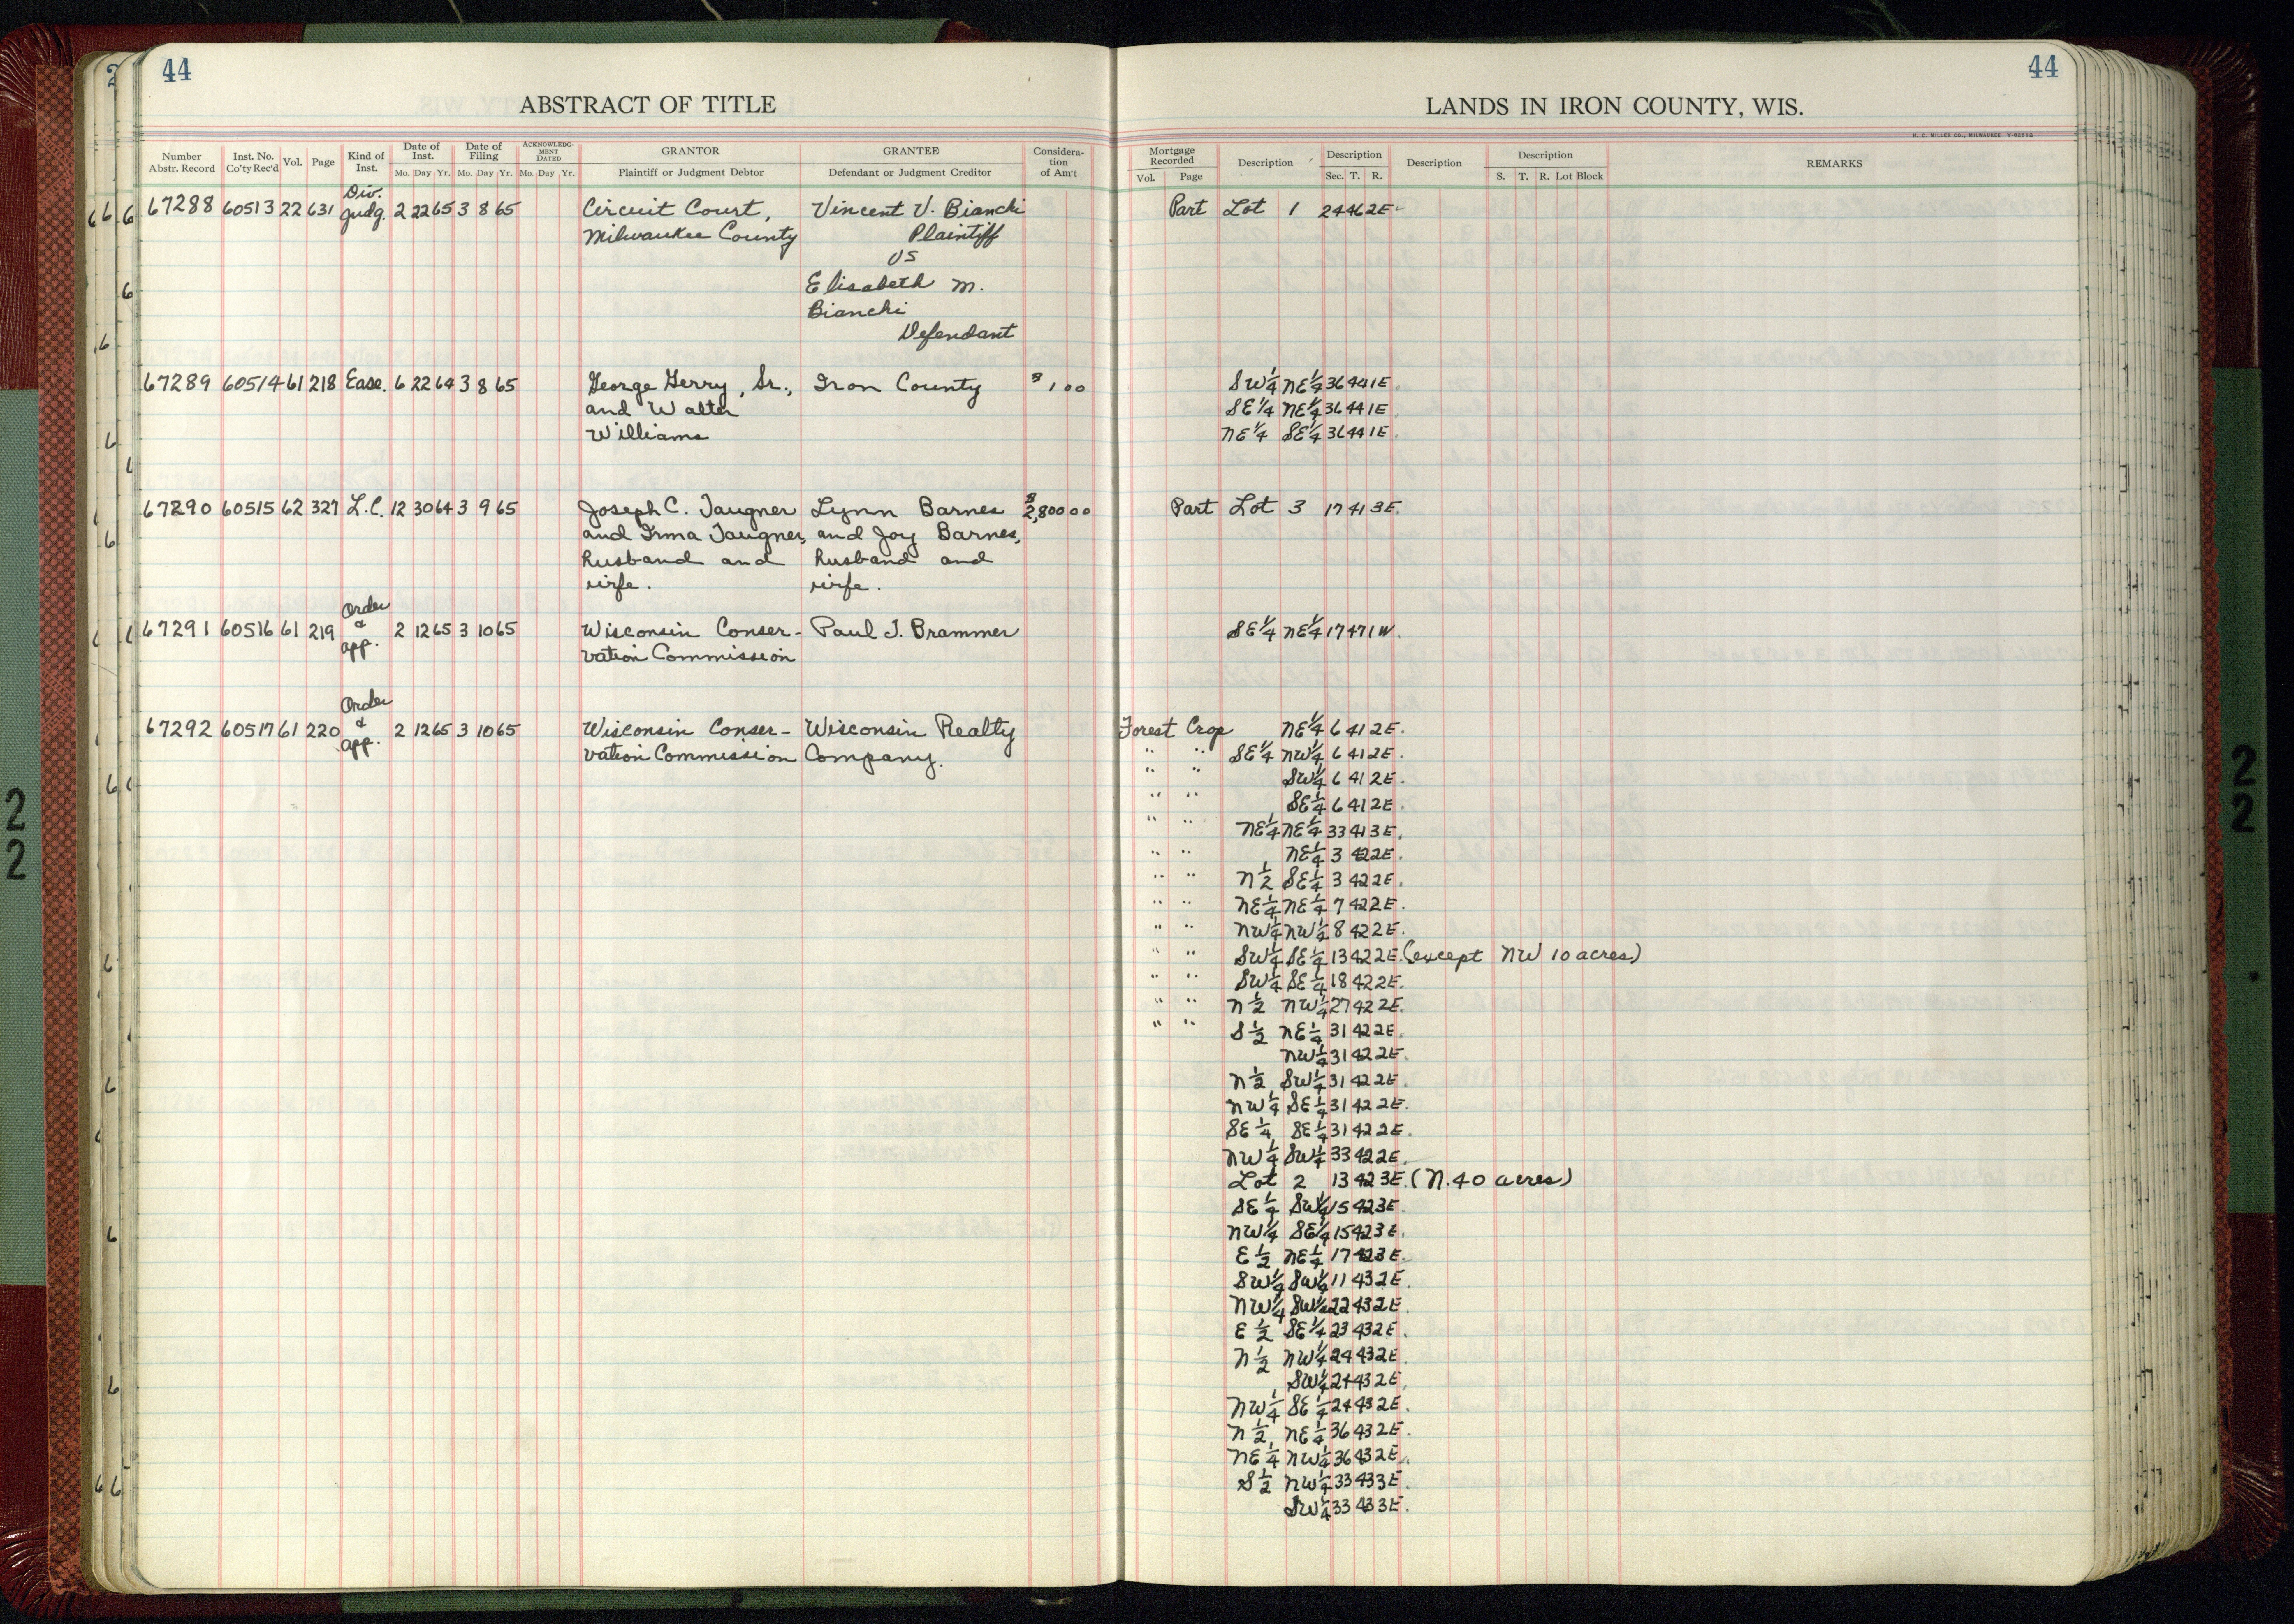 44
ABSTRACT OF TITLE
Number Abstr. Record
Inst. No. Co'ty Rec'd
Vol.
Page
Kind of Inst.
Date of Inst.
Mo. Day Yr.
Date of Filing
Mo. Day Yr.
ACKNOWLEDG-MENT DATED
Mo. Day Yr.
GRANTOR
Plaintiff or Judgment Debtor
GRANTEE
Defendant or Judgment Creditor
Considera-tion of Am't
67288 60513 22 631 Div. Judg. 2 22 65 3 8 65 Circuit Court, Vincent V. Bianchi
Milwaukee County Plaintiff
VS
Elisabeth M.
Bianchi
Defendant
67289 60514 61 218 Ease. 6 22 64 3 8 65 George Gerry, Sr., Iron County $1 00
and Walter
Williams
67290 60515 62 327 L.C. 12 30 64 3 9 65 Joseph C. Taugner Lynn Barnes $2,800 00
and Irma Taugner, and Joy Barnes,
husband and husband and
wife. wife.
67291 60516 61 219 Order & app. 2 12 65 3 10 65 Wisconsin Conser- Paul J. Brammer
vation Commission
67292 60517 61 220 Order & app. 2 12 65 3 10 65 Wisconsin Conser- Wisconsin Realty
vation Commission Company.
44
LANDS IN IRON COUNTY, WIS.
H. C. MILLER CO., MILWAUKEE
Mortgage Recorded
Vol. Page
Description
Description
Sec. T. R.
Description
Description
S. T. R. Lot Block
REMARKS
Part Lot 1 24 46 2E
SW¼ NE¼ 36 44 1E
SE¼ NE¼ 36 44 1E
NE¼ SE¼ 36 44 1E.
Part Lot 3 17 41 3E.
SE¼ NE¼ 17 47 1W.
Forest Crop NE¼ 6 41 2E.
" " SE¼ NW¼ 6 41 2E.
" " SW¼ 6 41 2E.
" " SE¼ 6 41 2E.
" " NE¼ NE¼ 33 41 3E.
" " NE¼ 3 42 2E.
" " N½ SE¼ 3 42 2E.
" " NE¼ NE¼ 7 42 2E.
" " NW¼ NW¼ 8 42 2E.
" " SW¼ SE¼ 13 42 2E. (except NW 10 acres)
" " SW¼ SE¼ 18 42 2E.
" " N½ NW¼ 27 42 2E.
" " S½ NE¼ 31 42 2E.
NW¼ 31 42 2E.
N½ SW¼ 31 42 2E.
NW¼ SE¼ 31 42 2E.
SE¼ SE¼ 31 42 2E.
NW¼ SW¼ 33 42 2E.
Lot 2 13 42 3E. (N. 40 acres)
SE¼ SW¼ 15 42 3E.
NW¼ SE¼ 15 42 3E.
E½ NE¼ 17 42 3E.
SW¼ SW¼ 11 43 2E.
NW¼ SW¼ 22 43 2E.
E½ SE¼ 23 43 2E.
N½ NW¼ 24 43 2E.
SW¼ 24 43 2E.
NW¼ SE¼ 24 43 2E.
N½ NE¼ 36 43 2E.
NE¼ NW¼ 36 43 2E.
S½ NW¼ 33 43 3E.
SW¼ 33 43 3E.
22
22